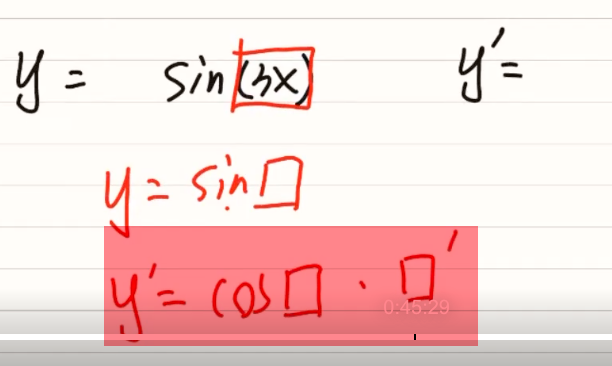 y = sin(3x) y' =
y = sin□
y' = cos□ · □'
0:45:29